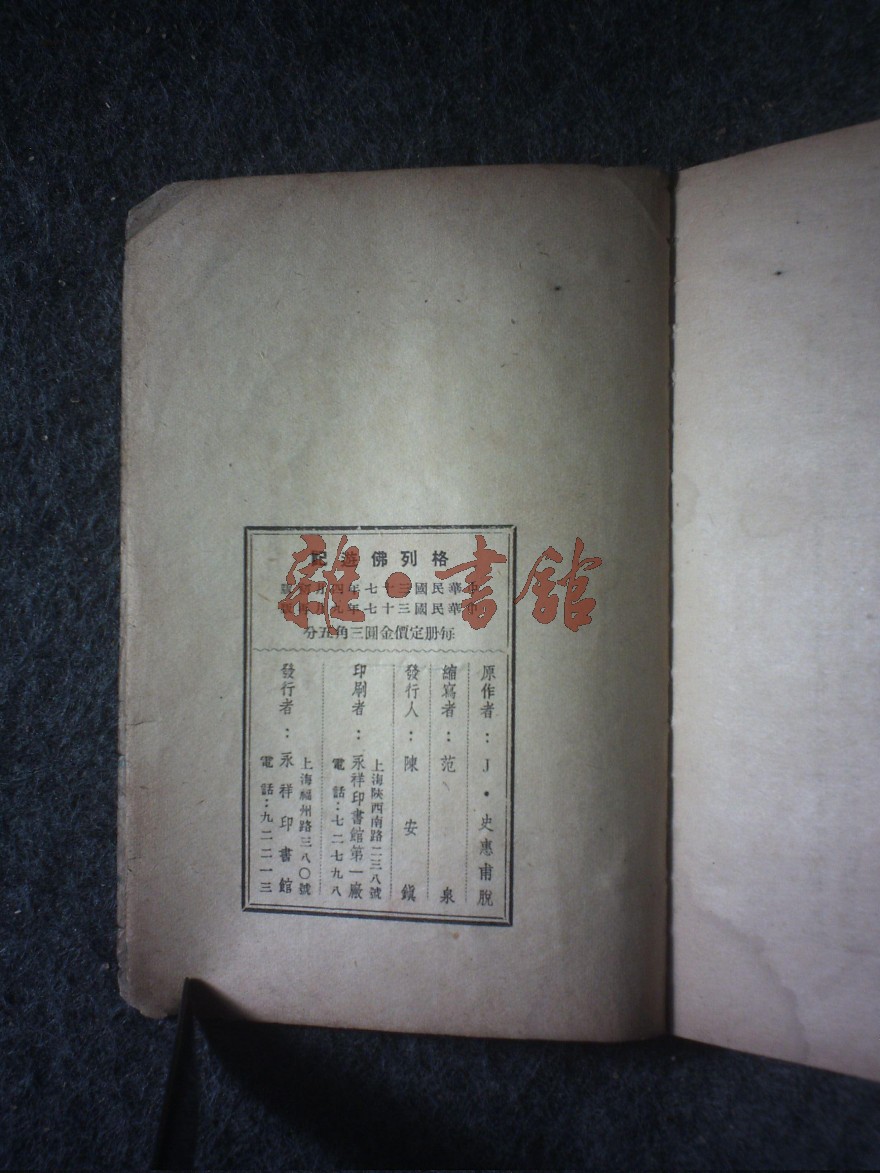 格列佛遊記
中華民國三十七年四月初版
中華民國三十七年九月再版
每册定價金圓三角五分
原作者：J·史惠甫脫
縮寫者：范泉
發行人：陳安鎮
印刷者：永祥印書館第一廠
上海陝西南路二三八號
電話：七二七九八
發行者：永祥印書館
上海福州路三八〇號
電話：九二二一三
雜·書館